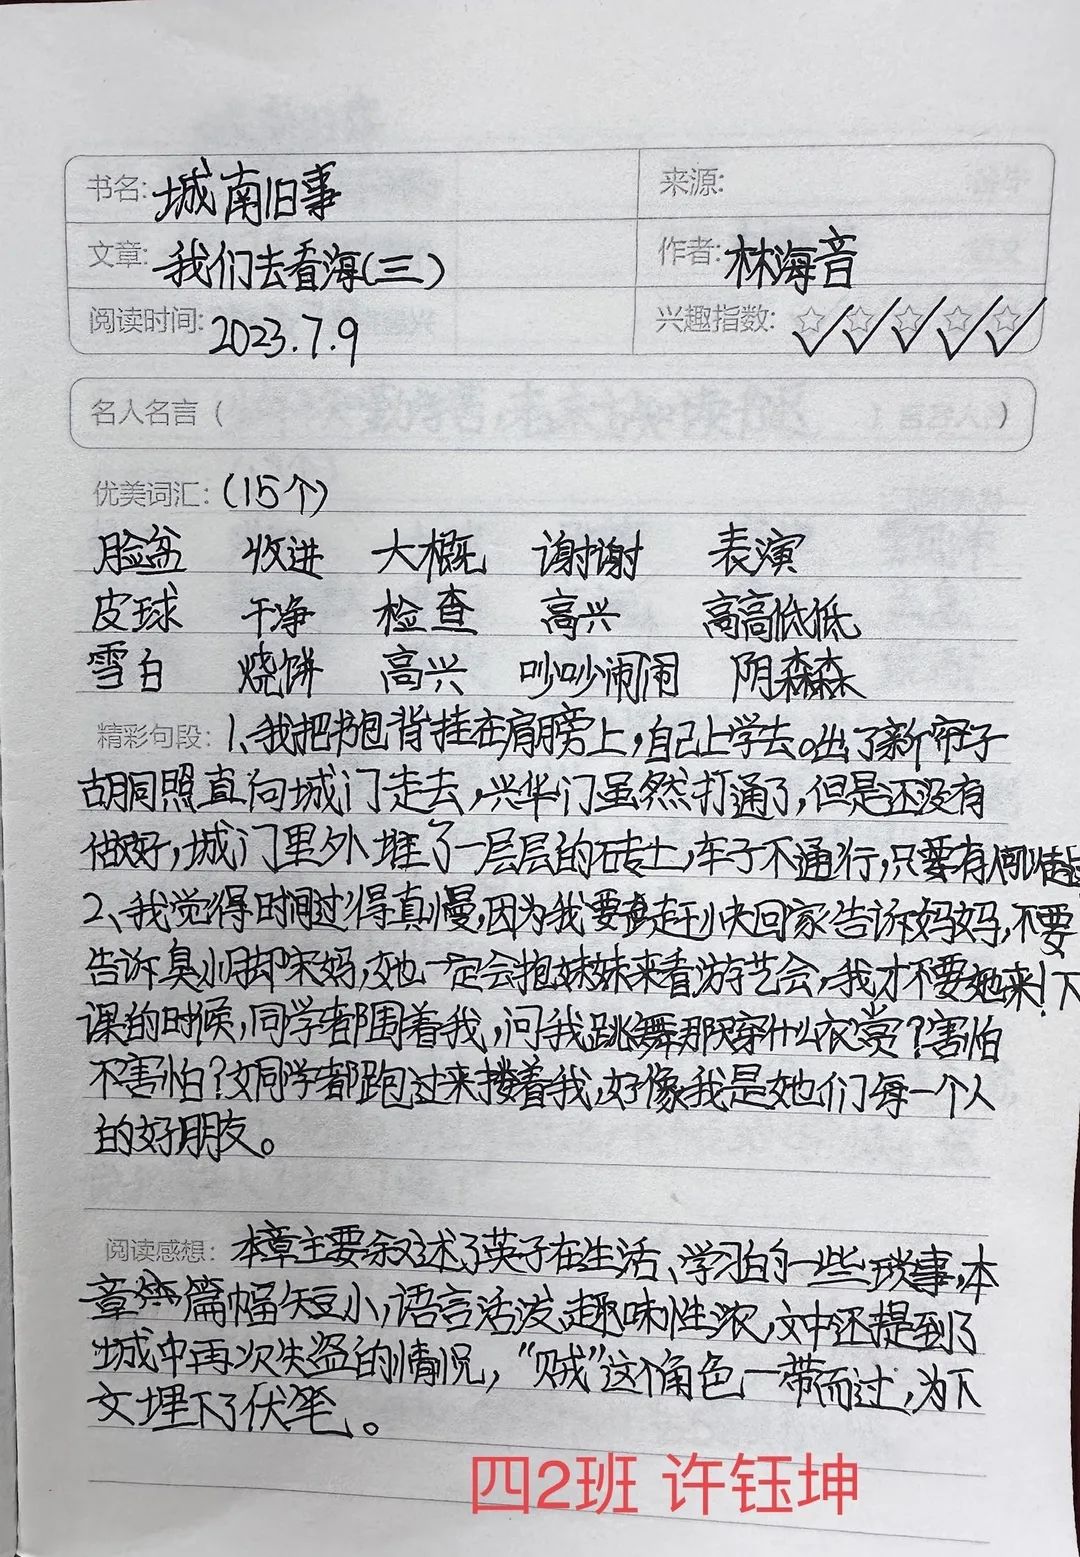 书名: 城南旧事 来源:
文章: 我们去看海(三) 作者: 林海音
阅读时间: 2023.7.9 兴趣指数: ☆☆☆☆☆
名人名言 ( )
优美词汇: (15个)
脸盆 收进 大概 谢谢 表演
皮球 干净 检查 高兴 高高低低
雪白 烧饼 高兴 吵吵闹闹 阴森森
精彩句段: 1、我把书包背挂在肩膀上,自己上学去。出了新帘子
胡同照直向城门走去,兴华门虽然打通了,但是还没有
做好,城门里外堆了一层层的砖土,车子不通行,只要有人可以走
2、我觉得时间过得真慢,因为我要赶快回家告诉妈妈,不要
告诉臭小脚宋妈,她一定会抱妹妹来看游艺会,我才不要她来!下
课的时候,同学都围着我,问我跳舞那天穿什么衣赏?害怕
不害怕?女同学都跑过来搂着我,好像我是她们每一个人
的好朋友。
阅读感想: 本章主要叙述了英子在生活、学习的一些琐事,本
章篇幅短小,语言活泼,趣味性浓,文中还提到了
城中再次失盗的情况,“贼”这个角色一带而过,为下
文埋下了伏笔。
四2班 许钰坤